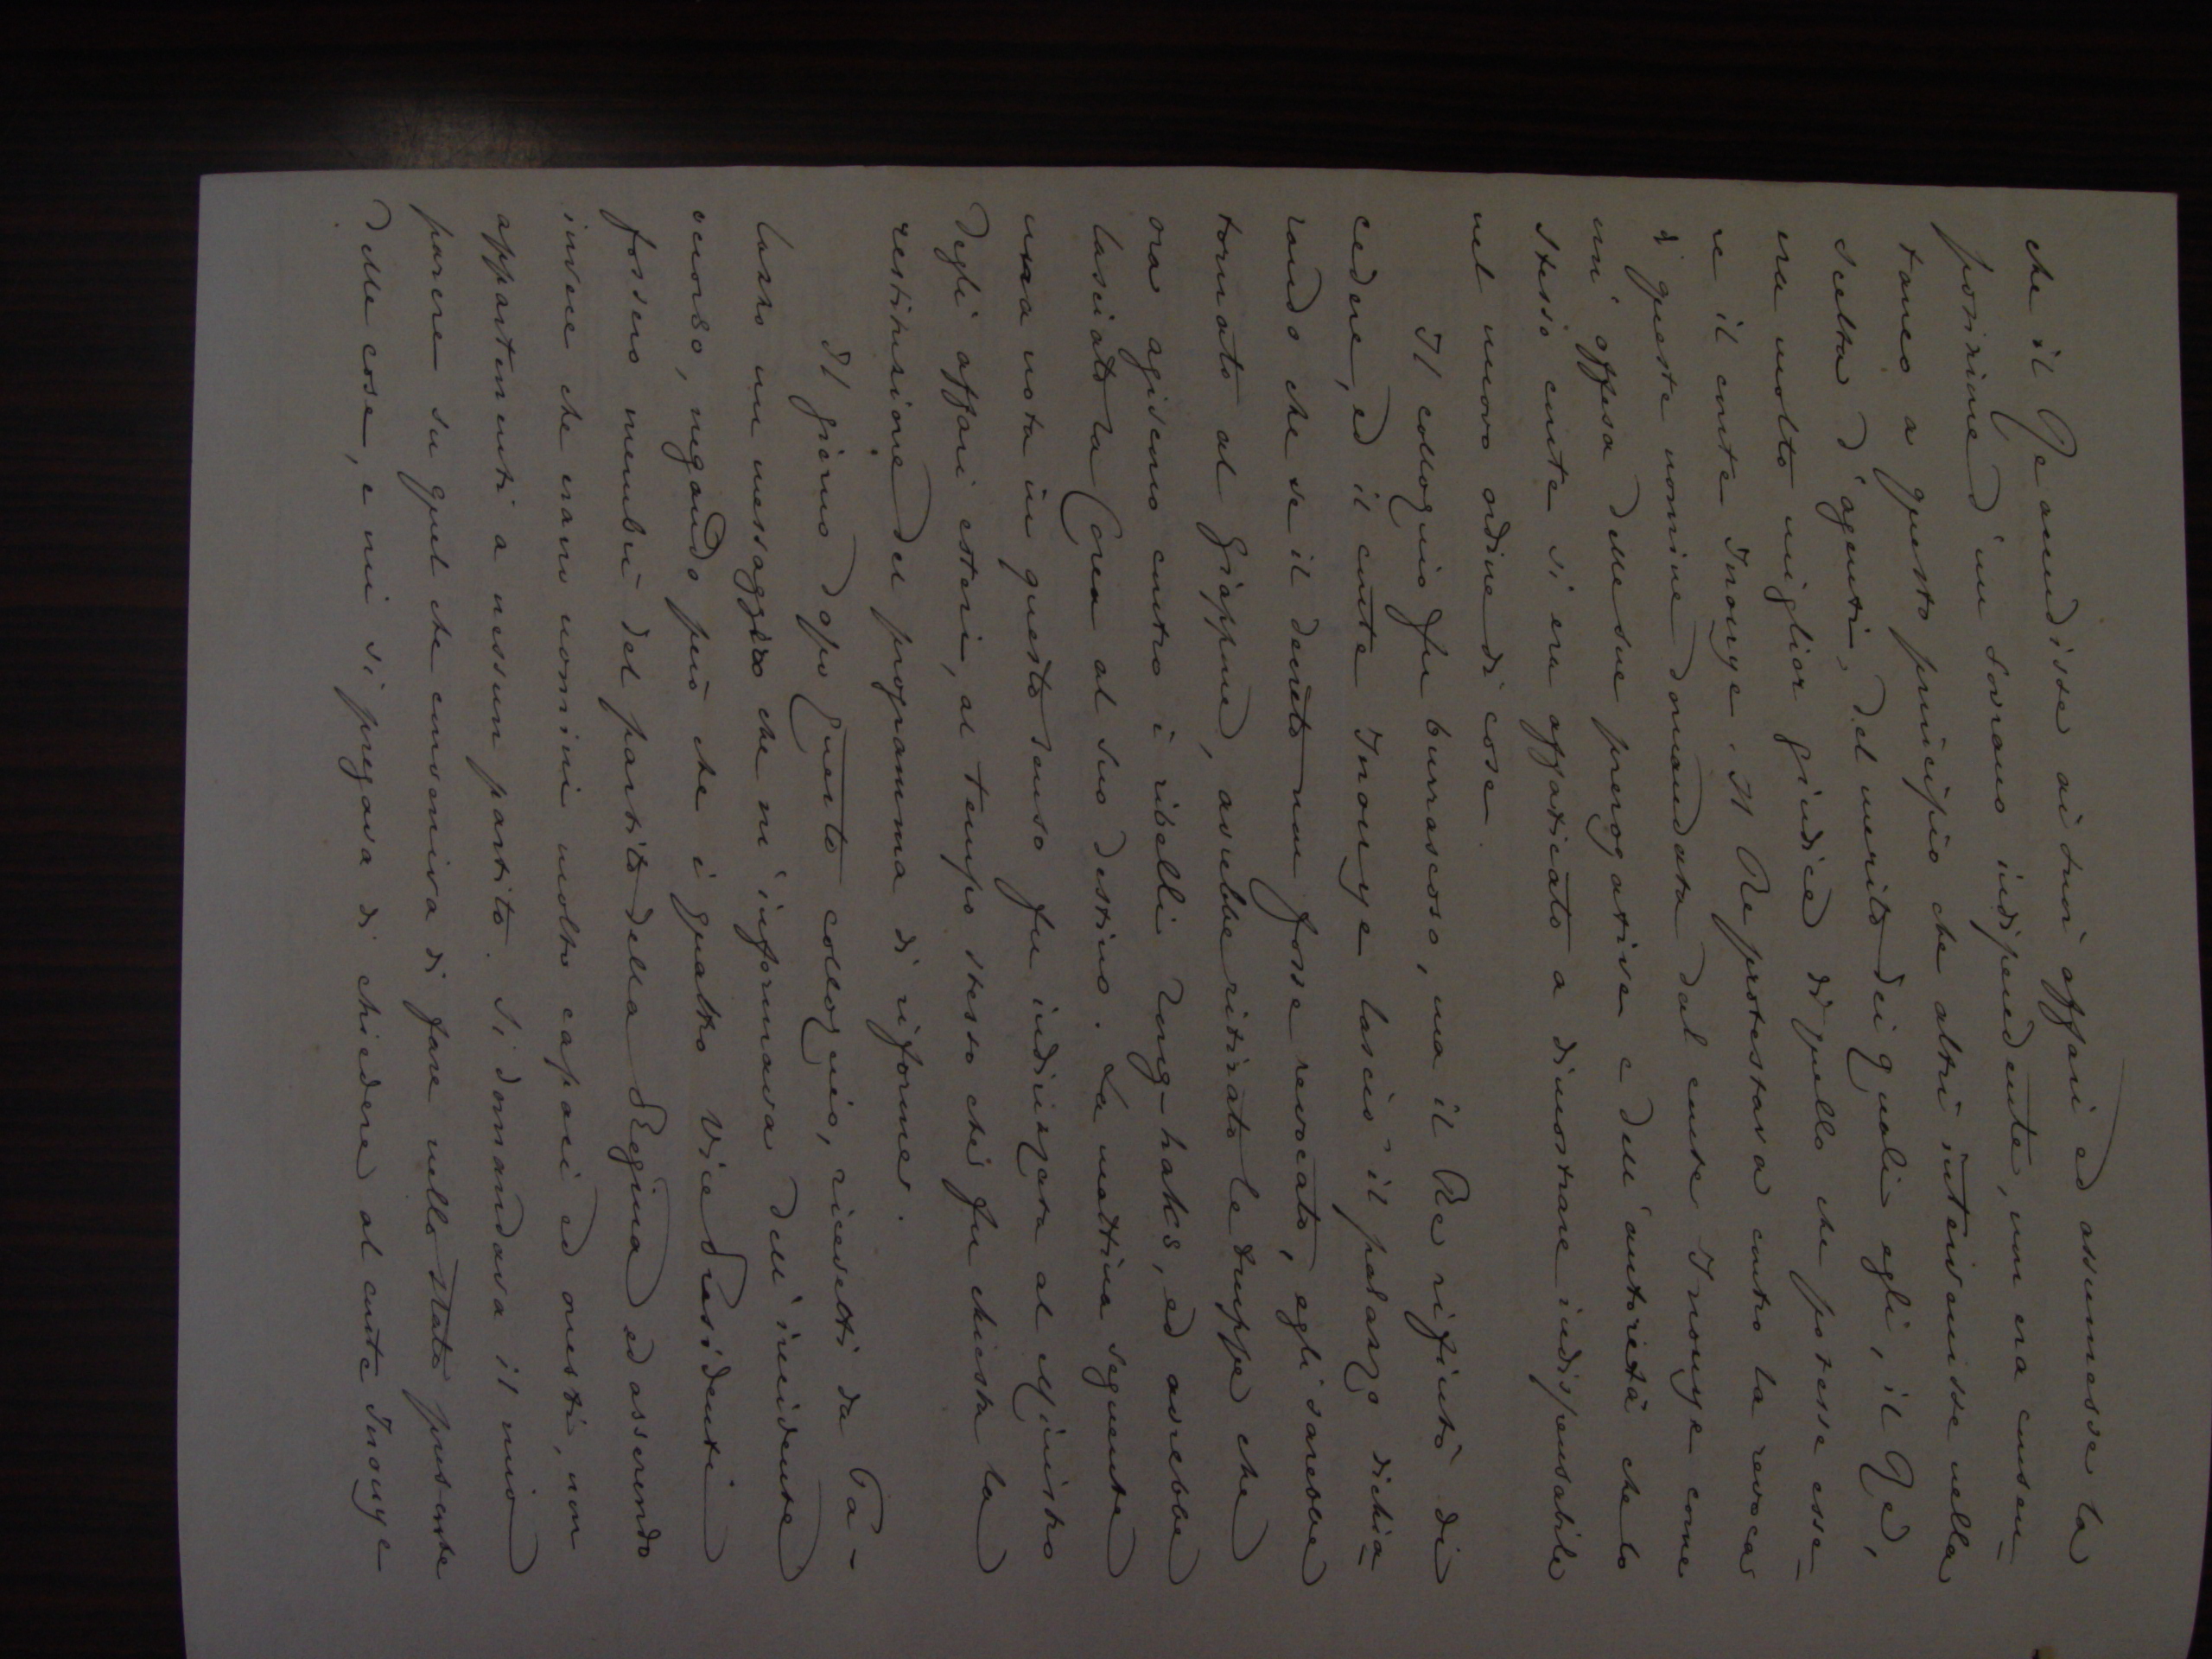 che il Re accudisse ai suoi affari ed assumesse la
posizione d'un sovrano indipendente, non era consen-
taneo a questo principio che altri intervenisse nella
scelta d'agenti, del merito dei quali egli, il Re,
era molto miglior giudice di quello che potesse esse-
re il conte Inouye. Il Re protestava contro la revoca
di queste nomine domandata dal conte Inouye come
un' offesa delle sue prerogative e dell' autorità che lo
stesso conte si era affaticato a dimostrare indispensabile
nel nuovo ordine di cose.
Il colloquio fu burrascoso, ma il Re rifiutò di
cedere, ed il conte Inouye lasciò il palazzo dichia-
rando che se il decreto non fosse revocato, egli sarebbe
tornato al Giappone, avrebbe ritirato le truppe che
ora agiscono contro i ribelli Tong-haks, ed avrebbe
lasciato la Corea al suo destino. La mattina seguente
una nota in questo senso fu indirizzata al Ministro
degli affari esteri, al tempo stesso che fu chiesta la
restituzione del programma di riforme.
Il giorno dopo questo colloquio, ricevetti da Pa-
lazzo un messaggio che m' informava dell' incidente
occorso, negando però che i quattro Vice Presidenti
fossero membri del partito della Regina ed asserendo
invece che erano uomini molto capaci ed onesti, non
appartenenti a nessun partito. Si domandava il mio
parere su quel che conveniva di fare nello stato presente
delle cose, e mi si pregava di chiedere al conte Inouye